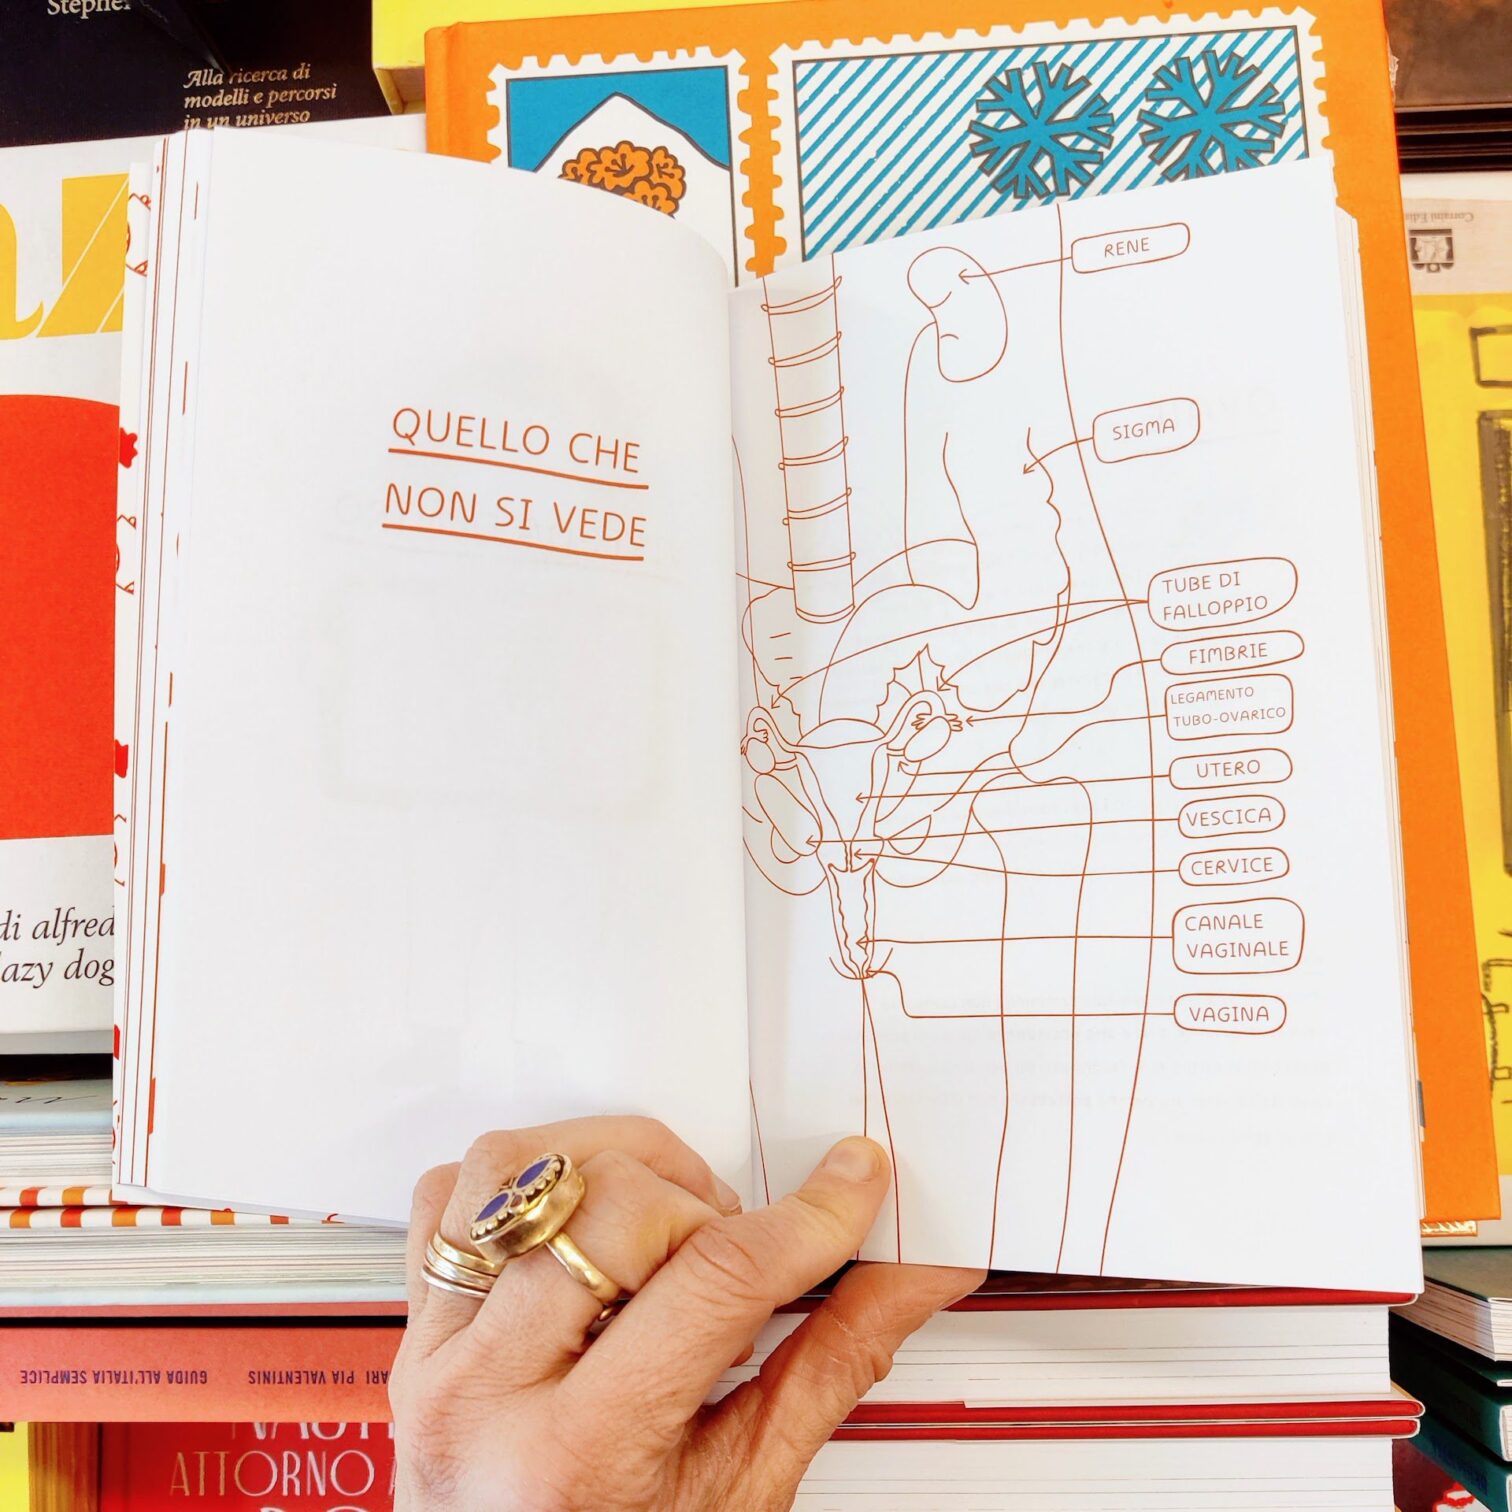 Stephen
Alla ricerca di
modelli e percorsi
in un universo
QUELLO CHE
NON SI VEDE
RENE
SIGMA
TUBE DI
FALLOPPIO
FIMBRIE
LEGAMENTO
TUBO-OVARICO
UTERO
VESCICA
CERVICE
CANALE
VAGINALE
VAGINA
di alfred
lazy dog
GUIDA ALL'ITALIA SEMPLICE
PIA VALENTINIS
ATTORNO